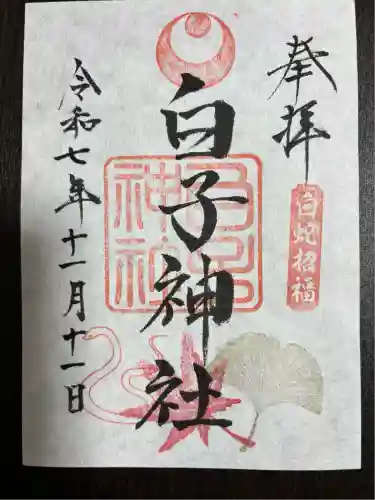 奉拝
白蛇招福
白子神社
令和七年十一月十一日